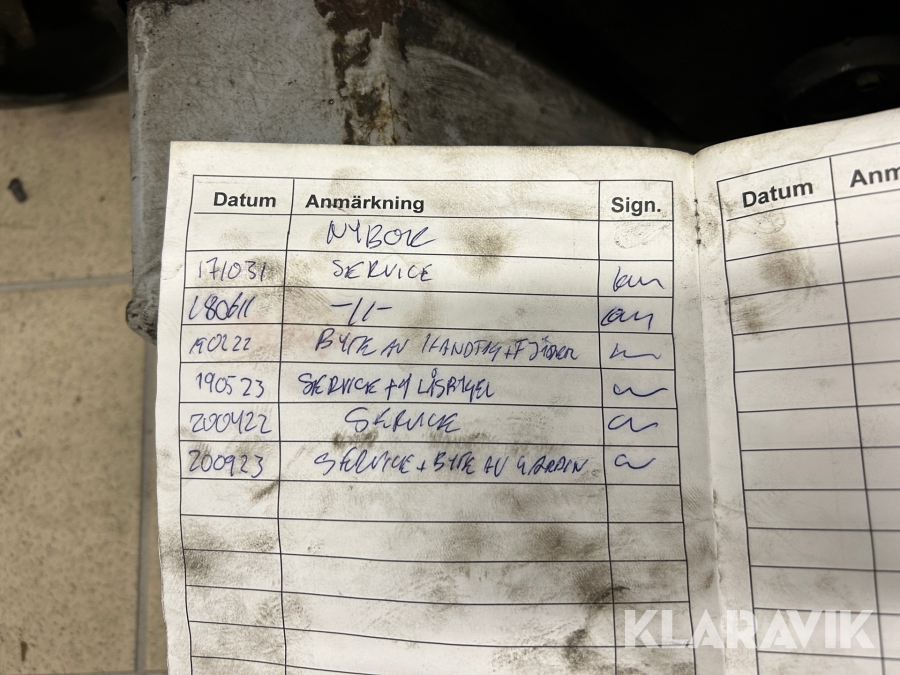 Datum Anmärkning Sign.
NYBOK
171031 SERVICE
180611 -11-
190222 BYTE AV HANDTAG + FJÄDER
190523 SERVICE + NY LÅSBYGEL
200422 SERVICE
200923 SERVICE + BYTE AV GARDIN
Datum Anm
KLARAVIK